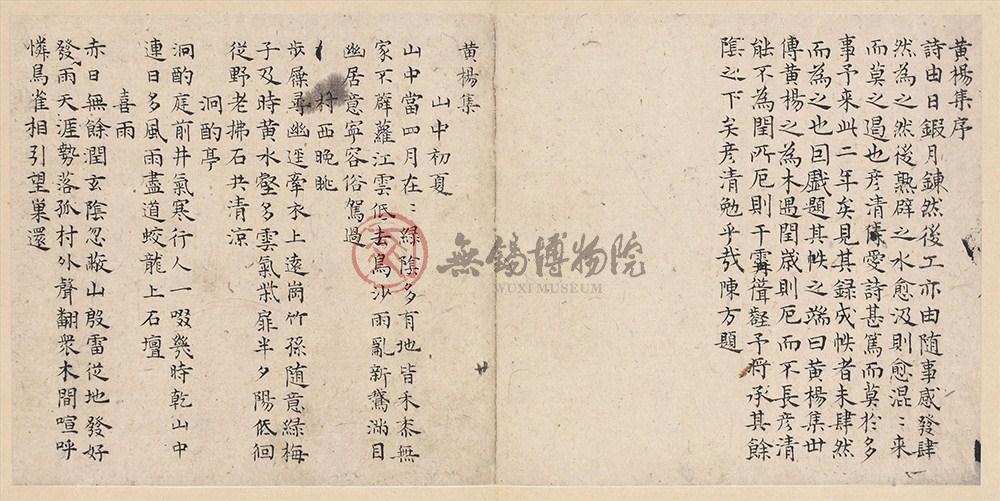 黄楊集序
詩由日鍜月鍊然後工亦由随事感發肆
然為之然後熟辟之水愈汲則愈混〻来
而莫之遏也彦清愛詩甚篤而莫於多
事予来此二年矣見其録成帙者未肆然
而為之也因戲題其帙之端曰黄楊集世
傳黄楊之為木遇閏歳則厄而不長彦清
能不為閏所厄則干霄聳壑予将承其餘
隂之下矣彦清勉乎哉陳方題
黄楊集
山中初夏
山中當四月在〻緑隂多有地皆禾黍無
家不薜蘿江雲低去鳥沙雨亂新鵞滿目
幽居意寧容俗駕過
村西晚眺
歩屧尋幽逕牽衣上遠崗竹孫随意緑梅
子及時黄水壑多雲氣柴扉半夕陽低佪
從野老拂石共清涼
洞酌亭
洞酌庭前井氣寒行人一啜幾時乾山中
連日多風雨盡道蛟龍上石壇
喜雨
赤日無餘潤玄陰忽蔽山殷雷從地發好
雨天涯勢落孤村外聲翻衆木間喧呼
憐鳥雀相引望巢還
無錫博物院
WUXI MUSEUM